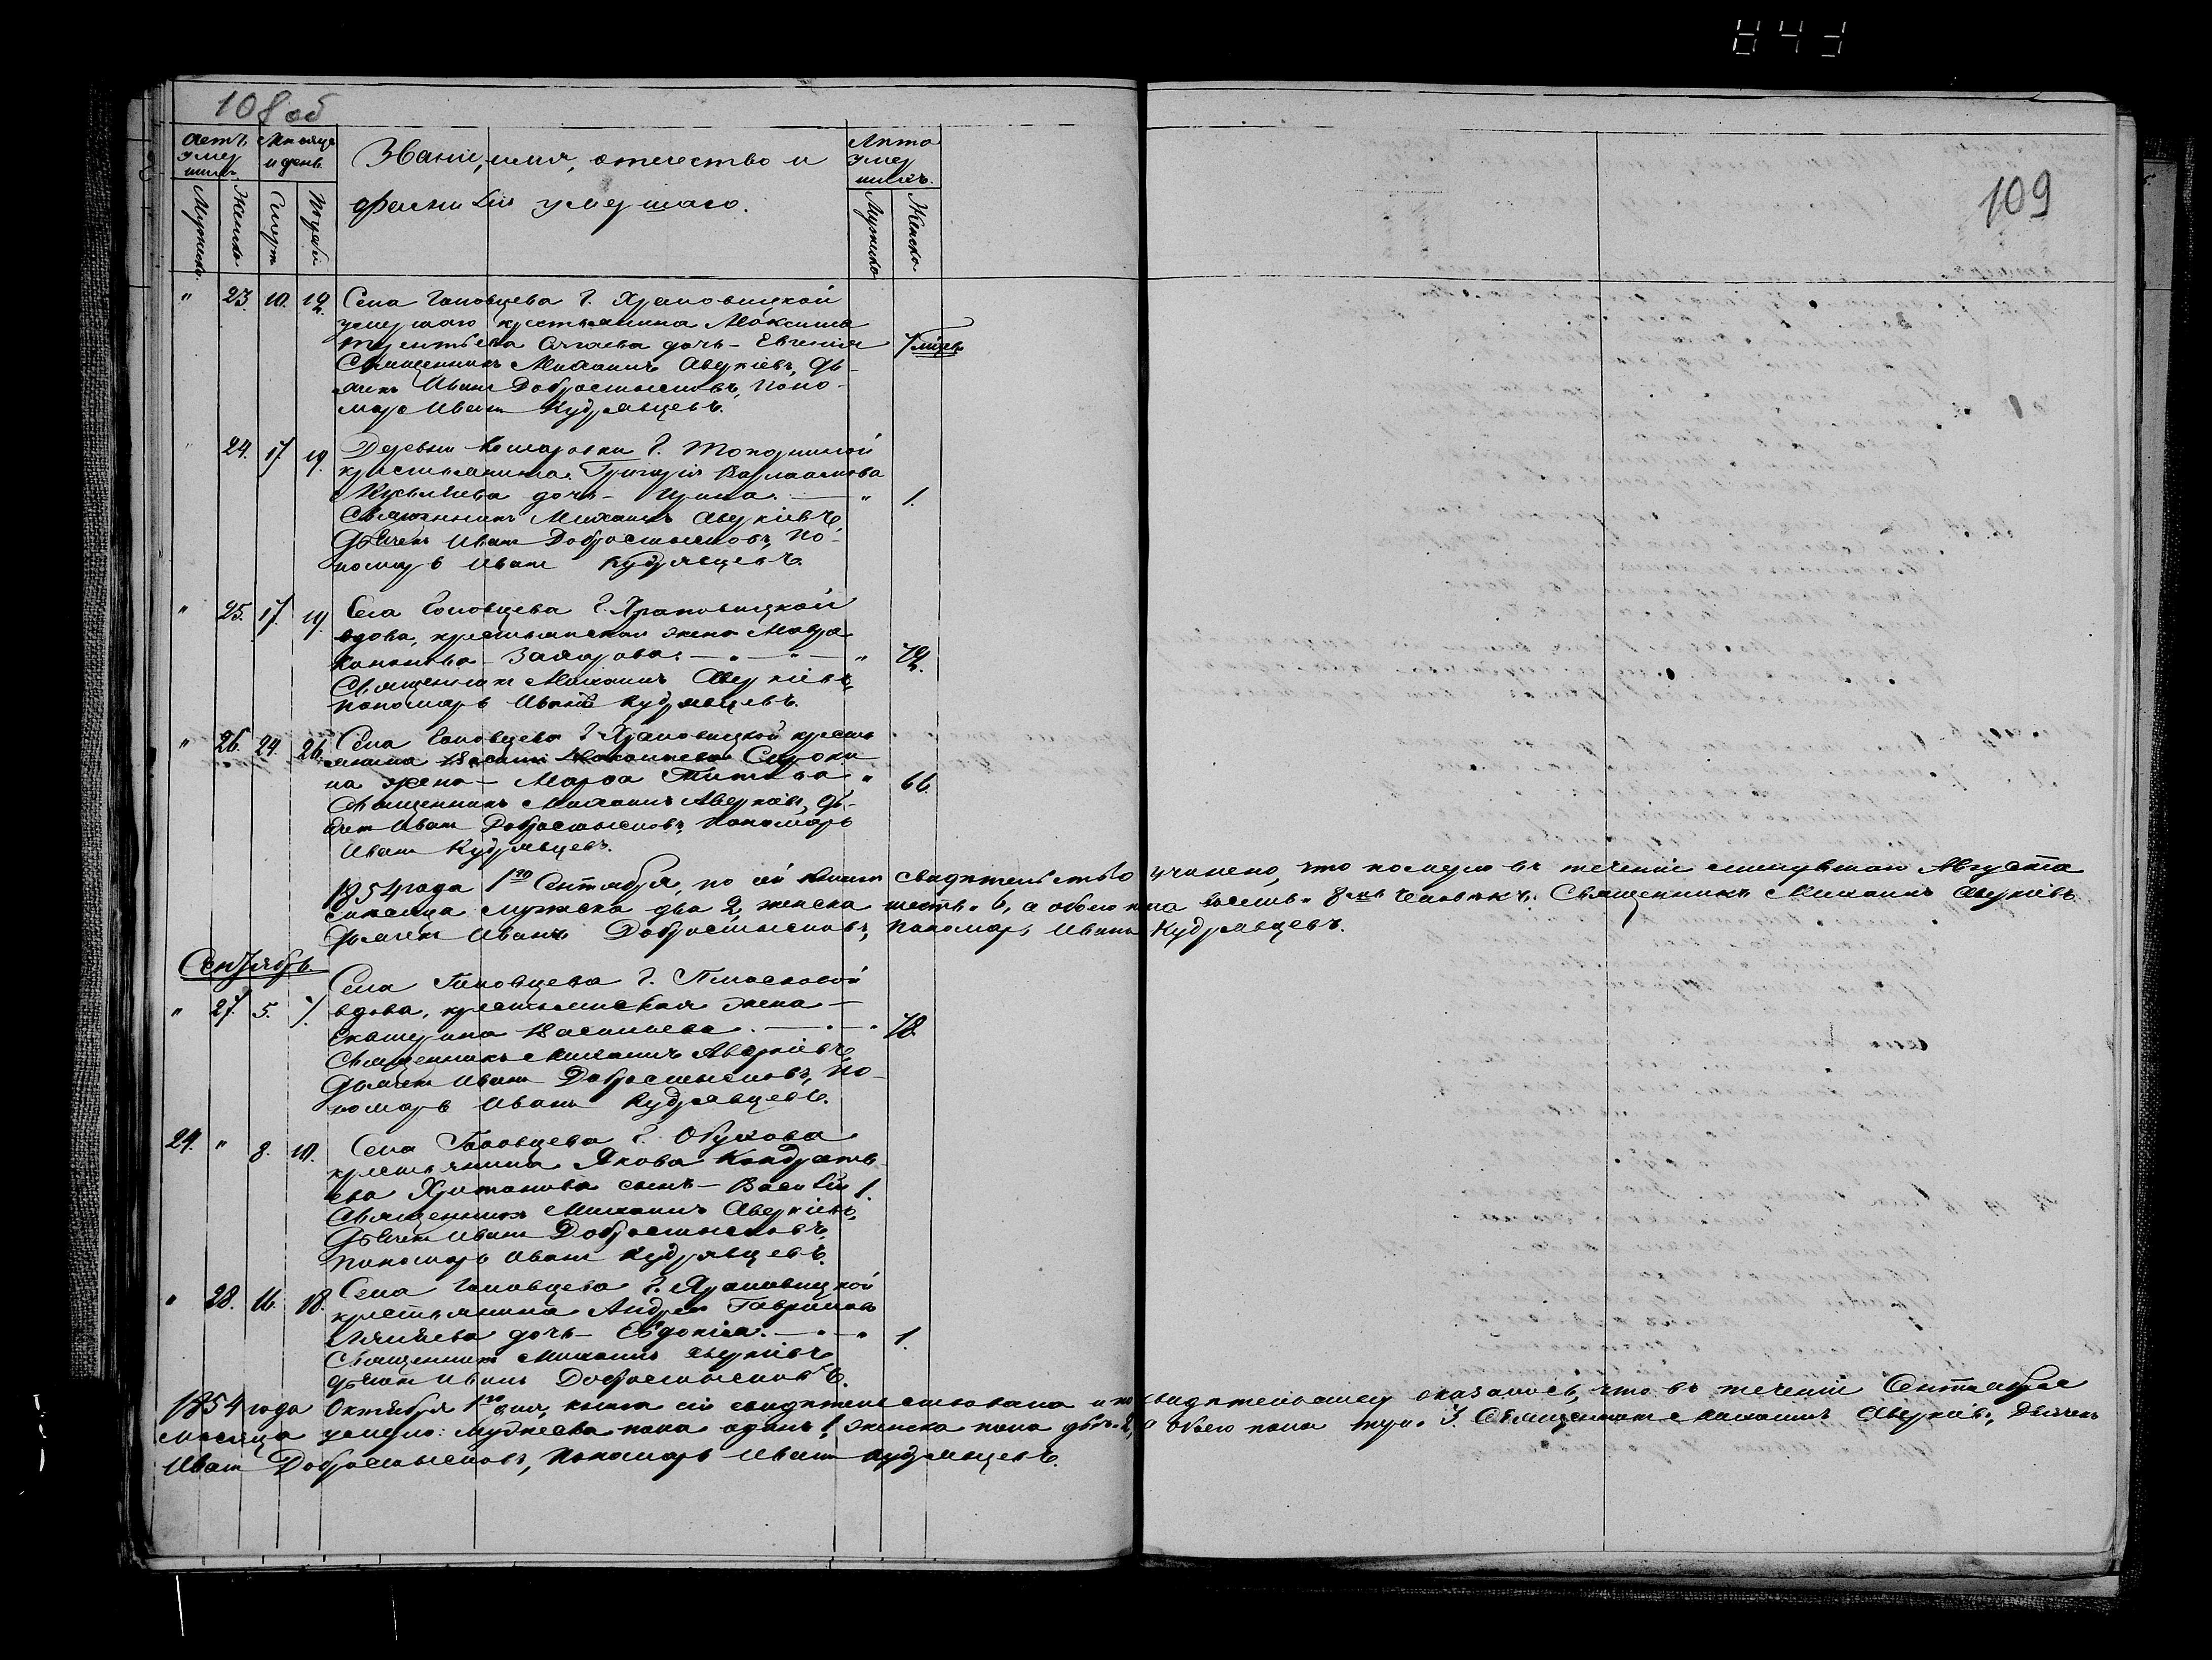 108 об
109
Счетъ умер шихъ.
Мѣсяцъ и день.
Званіе, имя, отечество и
фамилія умершаго.
Лѣта умер шихъ.
Мужеска. Женска. Смерт. Погреб. Мужеска Женска
" 23. 10. 12. Села Головцева Г. Храповицкой
умершаго крестьянина Максима
дочь - Евгенія 7 мѣсев.
Священникъ Михаилъ Аверкіевъ, дь-
ячекъ Иванъ Добросмысловъ, поно-
марь Иванъ Кудрявцевъ.
" 24. 17. 19. Деревни Комаровки Г.
крестьянина Григорія Варлаамова
дочь - Ирина. — " 1.
Священникъ Михаилъ Аверкіевъ,
Дьячекъ Иванъ Добросмысловъ, По-
номарь Иванъ Кудрявцевъ.
" 25. 17. 19. Села Головцева Г. Храповицкой
вдова, крестьянская жена Мавра
Захарова. — " — " 72.
Священникъ Михаилъ Аверкіевъ,
пономарь Иванъ Кудрявцевъ.
" 26. 24. 26. Села Головцева Г. Храповицкой кресть
янина Сироки
на жена - Марѳа Титова " 66.
Священникъ Михаилъ Аверкіевъ, дь-
ячекъ Иванъ Добросмысловъ, Пономарь
Иванъ Кудрявцевъ.
1854 года 1го Сентября, по сей книгѣ свидѣтельство учинено, что померло въ теченіе минувшаго Августа
мѣсяца мужеска два 2, женска шесть. 6, а обоего пола восемь. 8мь человѣкъ. Священникъ Михаилъ Аверкіевъ
Дьячекъ Иванъ Добросмысловъ, Пономарь Иванъ Кудрявцевъ.
Сентябрь.
" 27. 5. 7. Села Головцева Г. Плосковой
вдова, крестьянская жена —
Екатерина Васильева. — " — " 78.
Священникъ Михаилъ Аверкіевъ,
Дьячекъ Иванъ Добросмысловъ, По-
номарь Иванъ Кудрявцевъ.
24. " 8. 10. Села Головцева Г. Обухова
крестьянина Якова Кондрать
ева сынъ - Василій 1.
Священникъ Михаилъ Аверкіевъ,
Дьячекъ Иванъ Добросмысловъ,
пономарь Иванъ Кудрявцевъ.
" 28. 16. 18. Села Головцева Г. Храповицкой
крестьянина Андрея Гаврилова
дочь - Евдокія. — " — " 1.
Священникъ Михаилъ Аверкіевъ
дьячекъ Иванъ Добросмысловъ.
1854 года Октября 1го дня, книга сія свидѣтельствована и по свидѣтельству оказалось, что въ теченіе Сентября
мѣсяца умерло: мужеска пола одинъ 1, женска пола двѣ. 2, а обоего пола три. 3. Священникъ Михаилъ Аверкіевъ, Дьячекъ
Иванъ Добросмысловъ, Пономарь Иванъ Кудрявцевъ.